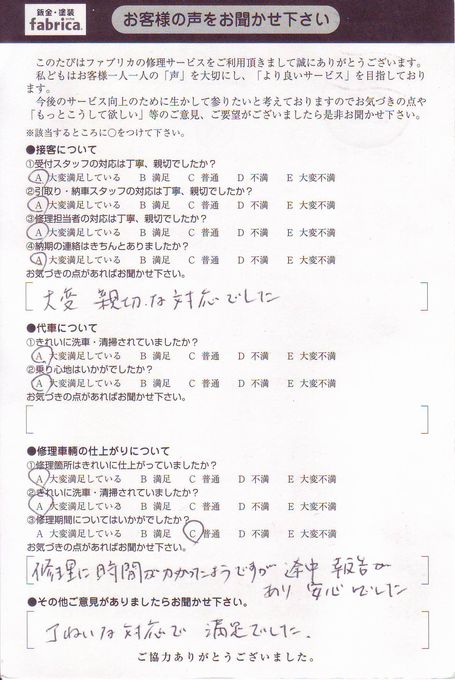 鈑金・塗装
fabrica.
お客様の声をお聞かせ下さい
このたびはファブリカの修理サービスをご利用頂きまして誠にありがとうございます。
私どもはお客様一人一人の「声」を大切にし、「より良いサービス」を目指しており
ます。
今後のサービス向上のために生かして参りたいと考えておりますのでお気づきの点や
「もっとこうして欲しい」等のご意見、ご要望がございましたら是非お聞かせ下さい。
※該当するところに○をつけて下さい。
●接客について
①受付スタッフの対応は丁寧、親切でしたか？
A 大変満足している B 満足 C 普通 D 不満 E 大変不満
②引取り・納車スタッフの対応は丁寧、親切でしたか？
A 大変満足している B 満足 C 普通 D 不満 E 大変不満
③修理担当者の対応は丁寧、親切でしたか？
A 大変満足している B 満足 C 普通 D 不満 E 大変不満
④納期の連絡はきちんとありましたか？
A 大変満足している B 満足 C 普通 D 不満 E 大変不満
お気づきの点があればお聞かせ下さい。
大変 親切な対応でした
●代車について
①きれいに洗車・清掃されていましたか？
A 大変満足している B 満足 C 普通 D 不満 E 大変不満
②乗り心地はいかがでしたか？
A 大変満足している B 満足 C 普通 D 不満 E 大変不満
お気づきの点があればお聞かせ下さい。
●修理車輌の仕上がりについて
①修理箇所はきれいに仕上がっていましたか？
A 大変満足している B 満足 C 普通 D 不満 E 大変不満
②きれいに洗車・清掃されていましたか？
A 大変満足している B 満足 C 普通 D 不満 E 大変不満
③修理期間についてはいかがでしたか？
A 大変満足している B 満足 C 普通 D 不満 E 大変不満
お気づきの点があればお聞かせ下さい。
修理に時間がかかったようですが 途中 報告が
あり 安心でした
●その他ご意見がありましたらお聞かせ下さい。
丁ねいな対応で 満足でした.
ご協力ありがとうございました。